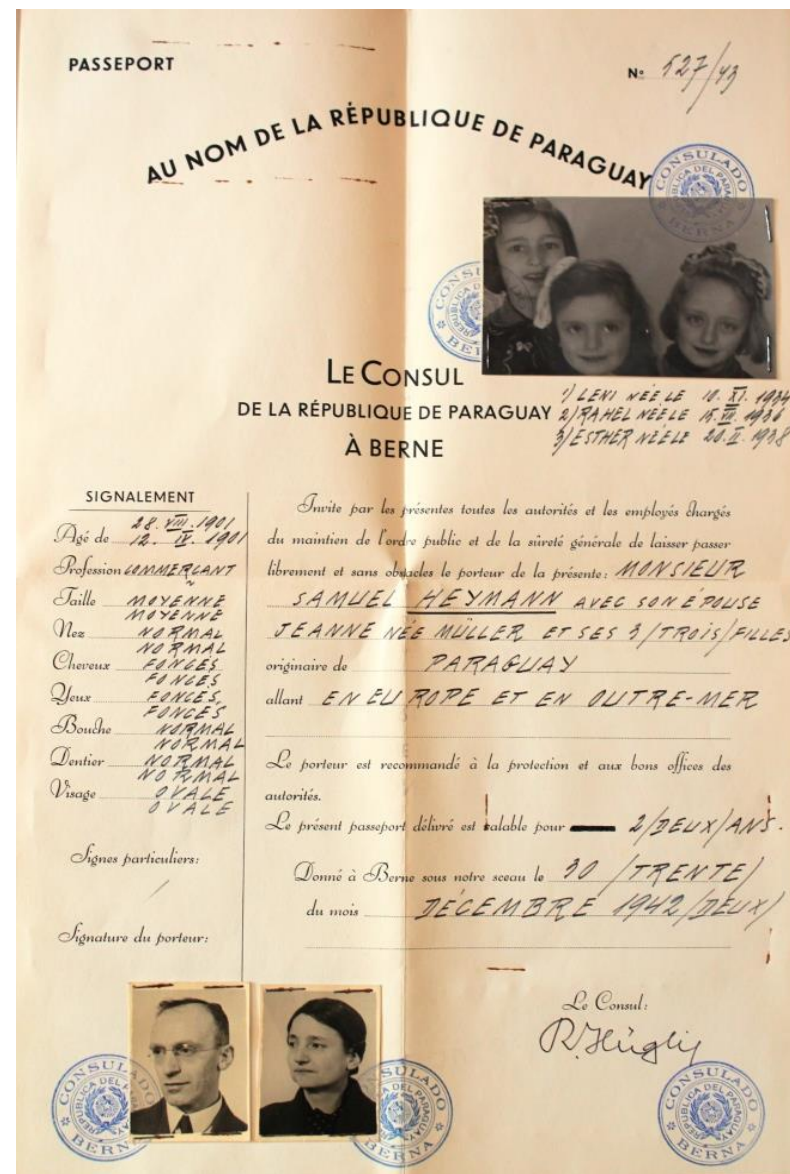 PASSEPORT
Nº 527/43
AU NOM DE LA RÉPUBLIQUE DE PARAGUAY
CONSULADO
REPUBLICA DEL PARAGUAY
BERNA
LE CONSUL
DE LA RÉPUBLIQUE DE PARAGUAY
À BERNE
1) LENI NÉE LE 10. XI. 1934
2) RAHEL NÉE LE 15. VII. 1936
3) ESTHER NÉE LE 20. II. 1938
SIGNALEMENT
28. VIII. 1901
Agé de 12. IX. 1901
Profession COMMERÇANT
Taille MOYENNE
MOYENNE
Nez NORMAL
NORMAL
Cheveux FONCÉS
FONCÉS
Yeux FONCÉS,
FONCÉS
Bouche NORMAL
NORMAL
Dentier NORMAL
NORMAL
Visage OVALE
OVALE
Signes particuliers:
Signature du porteur:
Invite par les présentes toutes les autorités et les employés chargés
du maintien de l'ordre public et de la sûreté générale de laisser passer
librement et sans obstacles le porteur de la présente: MONSIEUR
SAMUEL HEYMANN AVEC SON ÉPOUSE
JEANNE NÉE MÜLLER ET SES 3/TROIS/FILLES
originaire de PARAGUAY
allant EN EUROPE ET EN OUTRE-MER
Le porteur est recommandé à la protection et aux bons offices des
autorités.
Le présent passeport délivré est valable pour 2/DEUX/ANS.
Donné à Berne sous notre sceau le 30 /TRENTE/
du mois DÉCEMBRE 1942/DEUX/
Le Consul:
R. Hügli
CONSULADO
REPUBLICA DEL PARAGUAY
BERNA
CONSULADO
REPUBLICA DEL PARAGUAY
BERNA
CONSULADO
REPUBLICA DEL PARAGUAY
BERNA